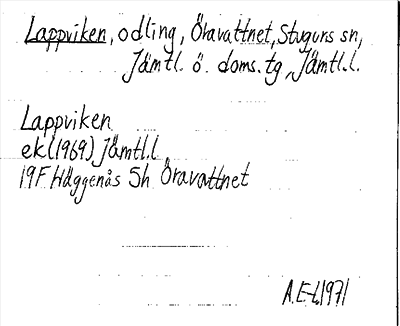 Lappviken, odling, Öravattnet, Stuguns sn,
Jämtl. ö. doms. tg, Jämtl.l.
Lappviken
ek(1969) Jämtl.l
19F Häggenås 5h Öravattnet
A.E-L1971